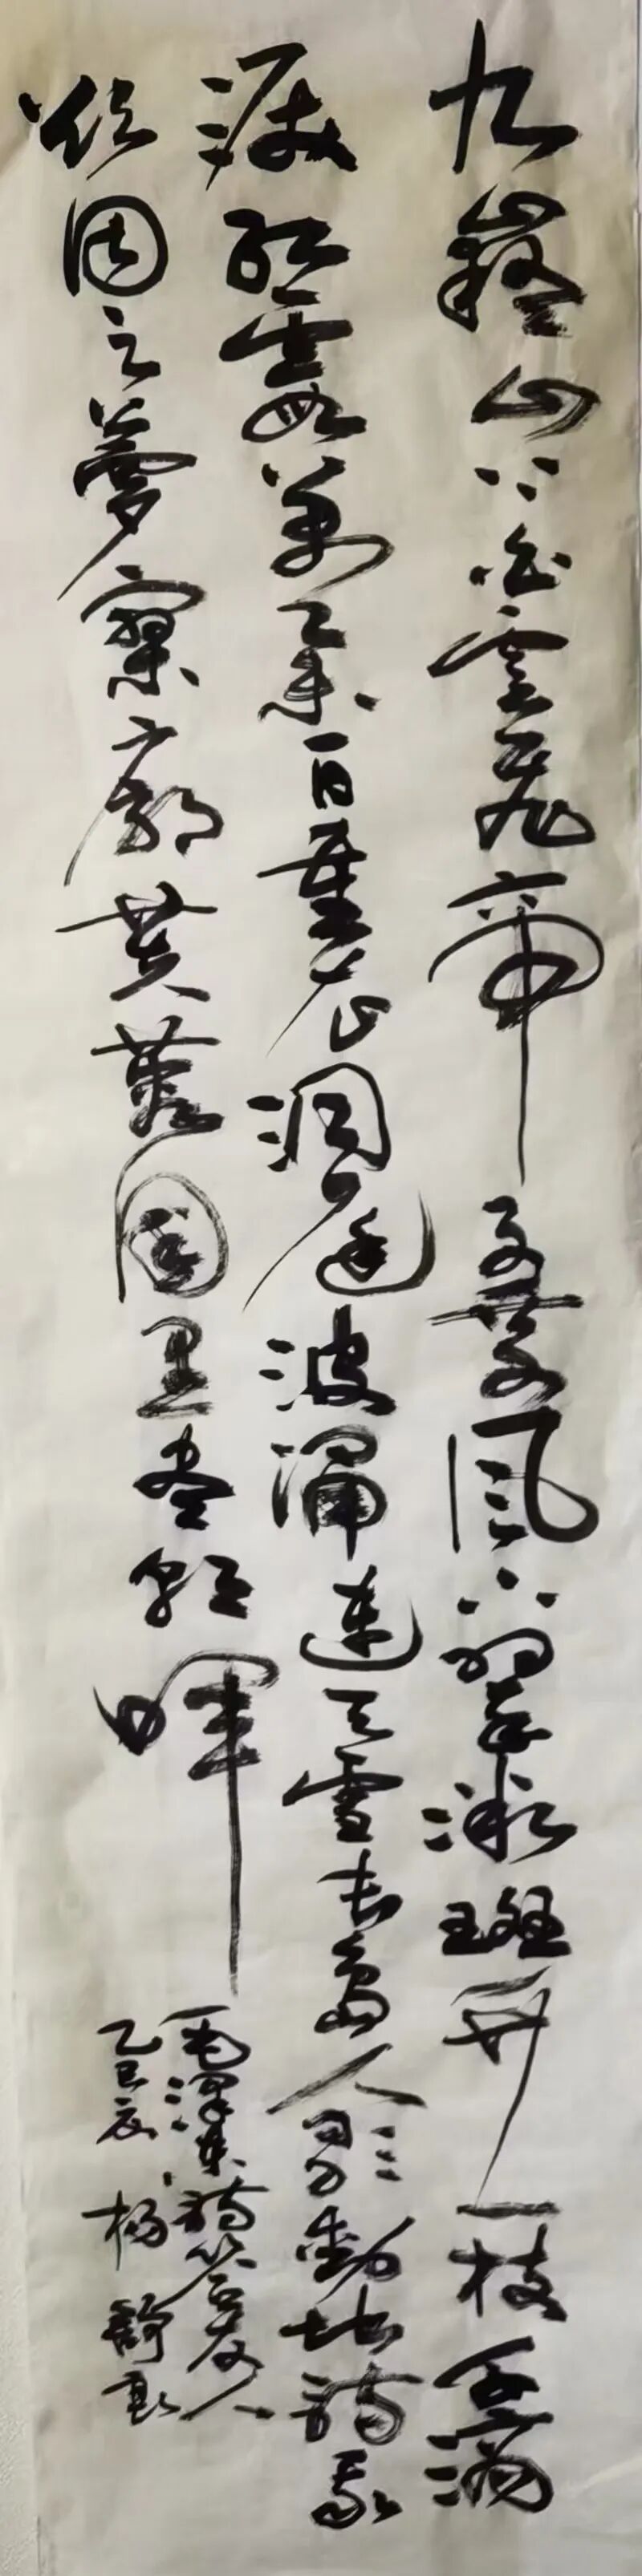 九嶷山上白雲飛帝子乘風下翠微斑竹一枝千滴
淚紅霞萬朵百重衣洞庭波涌連天雪長島人歌動地詩我
欲因之夢寥廓芙蓉國里盡朝暉
毛澤東詩答友人
乙巳夏 楊舒